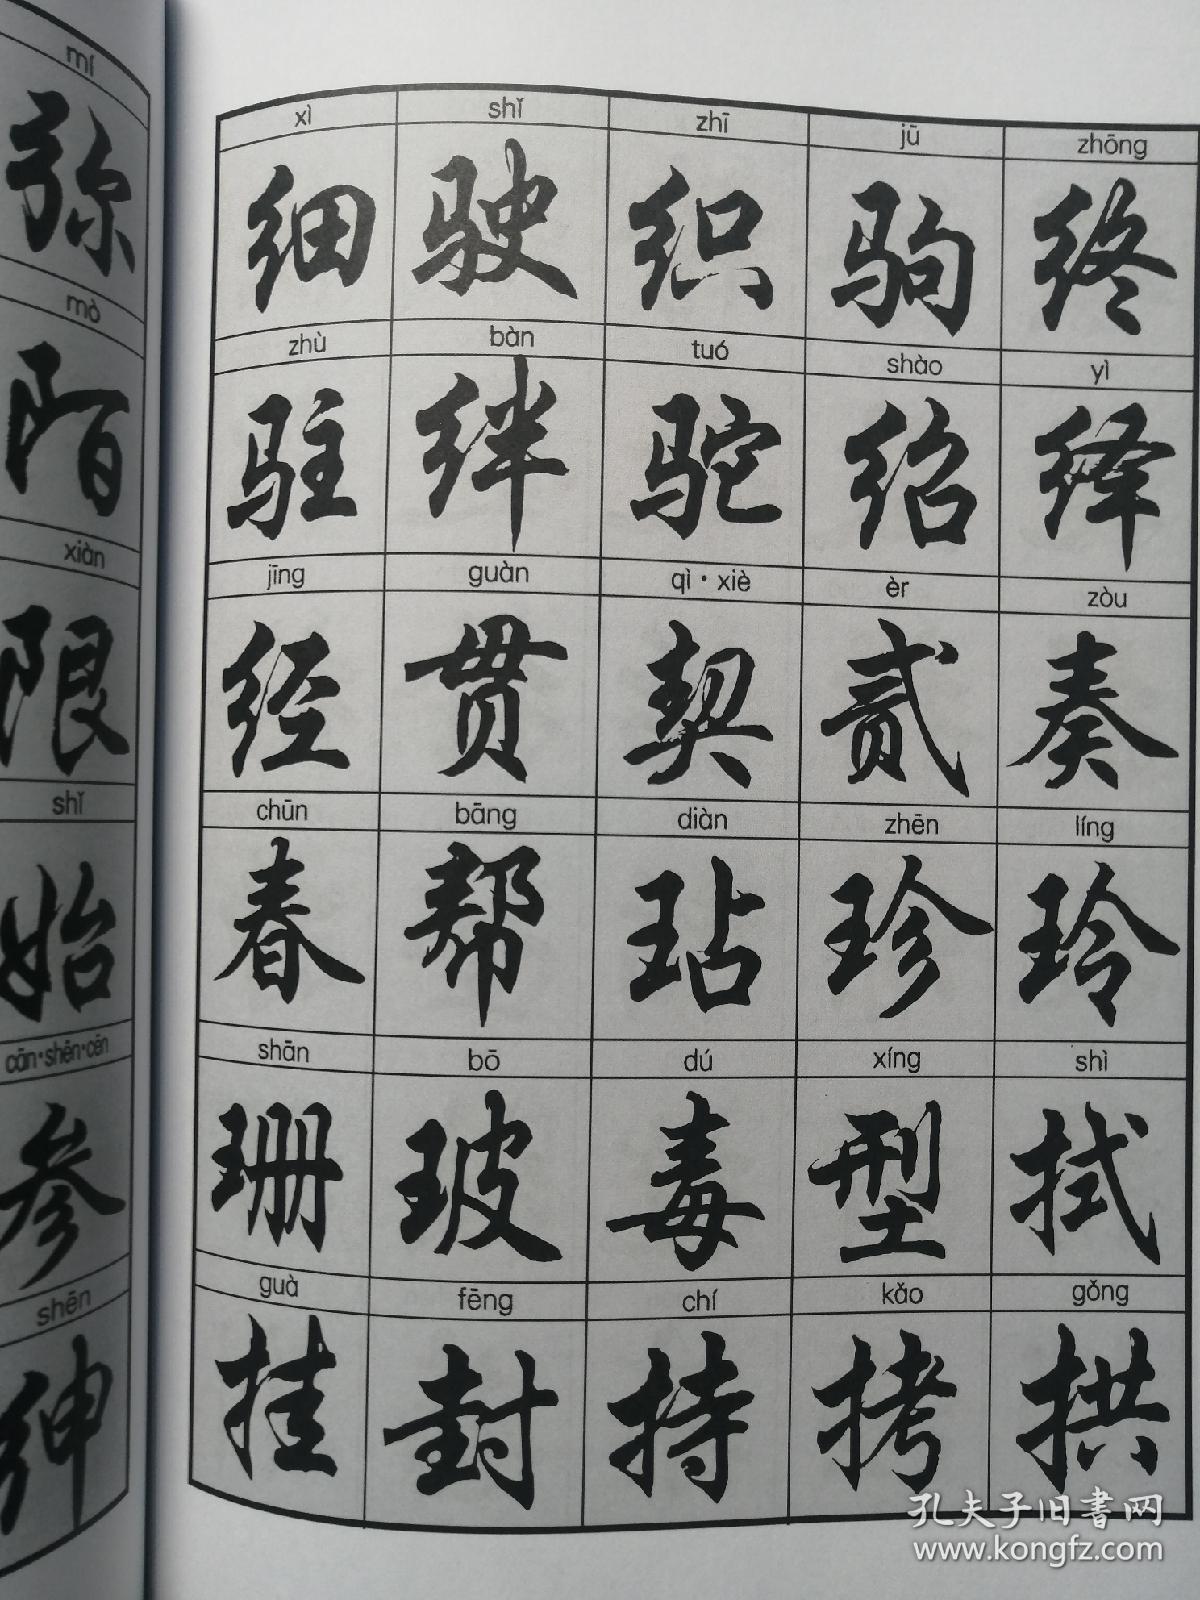 mí
弥
mò
陌
xiàn
限
shǐ
始
cān·shēn·cēn
参
shēn
绅
xì shǐ zhī jū zhōng
细 驶 织 驹 终
zhù bàn tuó shào yì
驻 绊 驼 绍 绎
jīng guàn qì·xiè èr zòu
经 贯 契 贰 奏
chūn bāng diàn zhēn líng
春 帮 玷 珍 玲
shān bō dú xíng shì
珊 玻 毒 型 拭
guà fēng chí kǎo gǒng
挂 封 持 拷 拱
孔夫子旧书网
www.kongfz.com